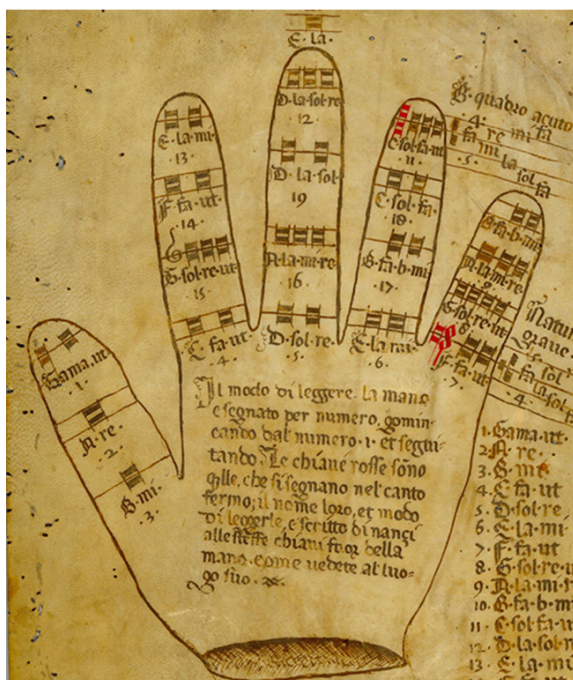 E·la·
D·la·sol·re
12·
E·la·mi·
13·
C·sol·fa·ut
11·
D·la·sol·
19
F·fa·ut
·14·
C·sol·fa·
18·
G·sol·re·ut
15·
A·la·mi·re
16·
B·fa·b·mi
·17·
C·fa·ut
·4·
D·sol·re·
·5·
E·la·mi·
6·
B·fa·b·mi·
A·la·mi·re
9·
G·sol·re·ut
8·
F·fa·ut
·7·
Gama·ut
·1·
A·re·
·2·
B·mi·
·3·
B·quadro acuto
·4·
fa re mi fa
fa mi la sol fa
·5·
Natur
grave·
·5·
sol
fa la sol fa
·4·
Il modo di leggere la mano
e segnato per numero, comin-
cando dal numero·1· et segui-
tando· Le chiave rosse sono
qlle, che si segnano nel canto
fermo; il nome loro, et modo
di leggerle, e scritto di nanci
alle stesse chiavi foor della
mano, come vedete al luo-
go suo·
1·Gama·ut·
2·A·re·
3·B·mi·
4·C·fa·ut
5·D·sol·re
6·E·la·mi·
7·F·fa·ut
8·G·sol·re·u
9·A·la·mi·r
10·B·fa·b·m
11·C·sol·fa·u
12·D·la·sol·r
13·E·la·mi